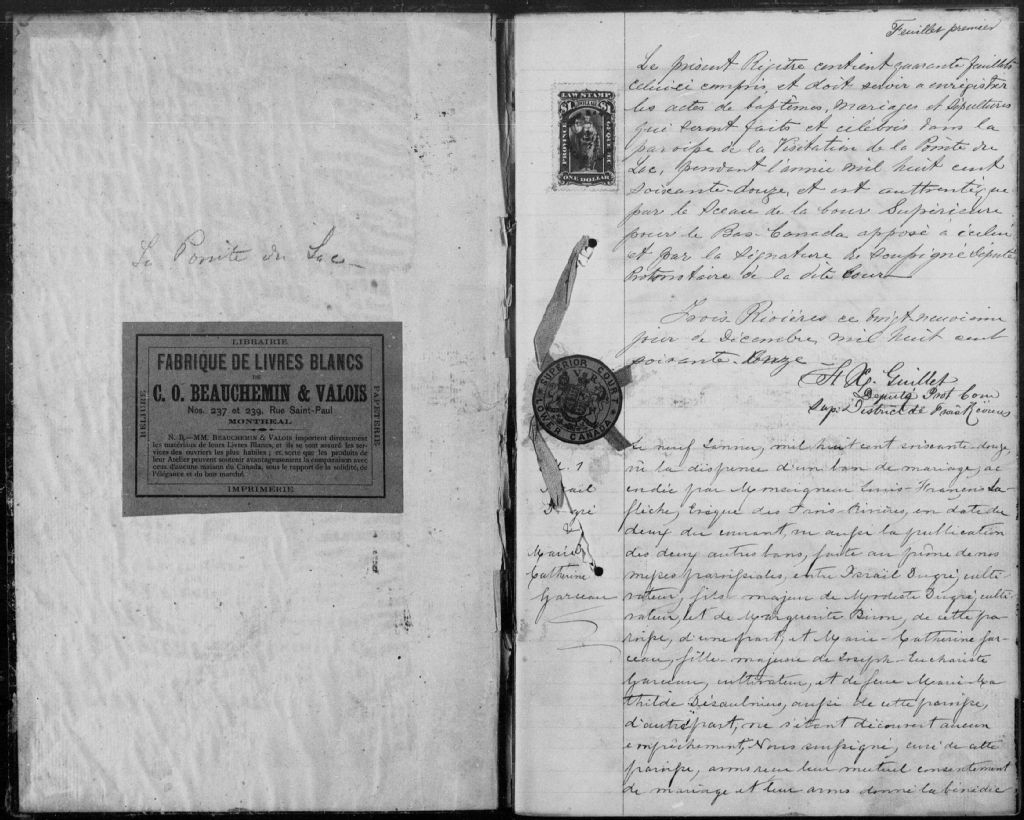 La Pointe du Lac
LIBRAIRIE
FABRIQUE DE LIVRES BLANCS
DE
C. O. BEAUCHEMIN & VALOIS
Nos. 237 et 239, Rue Saint-Paul
MONTREAL
N. B.—MM. BEAUCHEMIN & VALOIS importent directement
les matériaux de leurs Livres Blancs, et ils se sont assuré les ser-
vices des ouvriers les plus habiles; et sorte que les produits de
leur Atelier peuvent soutenir avantageusement la comparaison avec
ceux d'aucune maison du Canada, sous le rapport de la solidité, de
l'élégance et du bon marché.
IMPRIMERIE
RELIURE
PAPETERIE
Feuillet premier
LAW STAMP
$1 DOLLAR $1
PROVINCE OF QUEBEC
ONE DOLLAR
Le présent Régitre contient quarante feuillets
celui-ci compris, et doit servir a enrégistrer
les actes de baptêmes, Mariages et Sépultures
qui seront faits et célébrés dans la
paroisse de la Visitation de la Pointe du
Lac, pendant l'année mil huit cent
soixante-douze, et est authentiqué
par le Sceau de la Cour Supérieure
pour le Bas-Canada apposé a celui
et par la signature de Soussigné député
Protonotaire de la dite Cour
Trois Rivières ce vingt neuvième
jour de Décembre, mil huit cent
soixante-onze
F. X. Guillet
Député Prot. Cour
Sup. District de Trois Rivières
SUPERIOR COURT
LOWER CANADA
M. 1
Israil
Dugré
&
Marie
Catherine
Garceau
Le neuf Janvier, mil huit cent soixante-douze,
vu la dispense d'un ban de mariage, ac
cordée par Monseigneur Louis-François La-
flèche, Evêque des Trois-Rivières, en date du
deux du courant, vu aussi la publication
des deux autres bans, faite au prône de nos
messes paroissiales, entre Israil Dugré, culti-
vateur, fils majeur de Modeste Dugré, culti-
vateur, et de Marguerite Biron, de cette pa
roisse, d'une part; et Marie-Catherine Gar-
ceau, fille majeure de Joseph-Euchariste
Garceau, cultivateur, et de feue Marie-Ma
thilde Désaulniers, aussi de cette paroisse,
d'autre part, ne s'étant découvert aucun
empêchement, Nous soussigné, curé de cette
paroisse, avons reçu leur mutuel consentement
de mariage et leur avons donné la bénédic